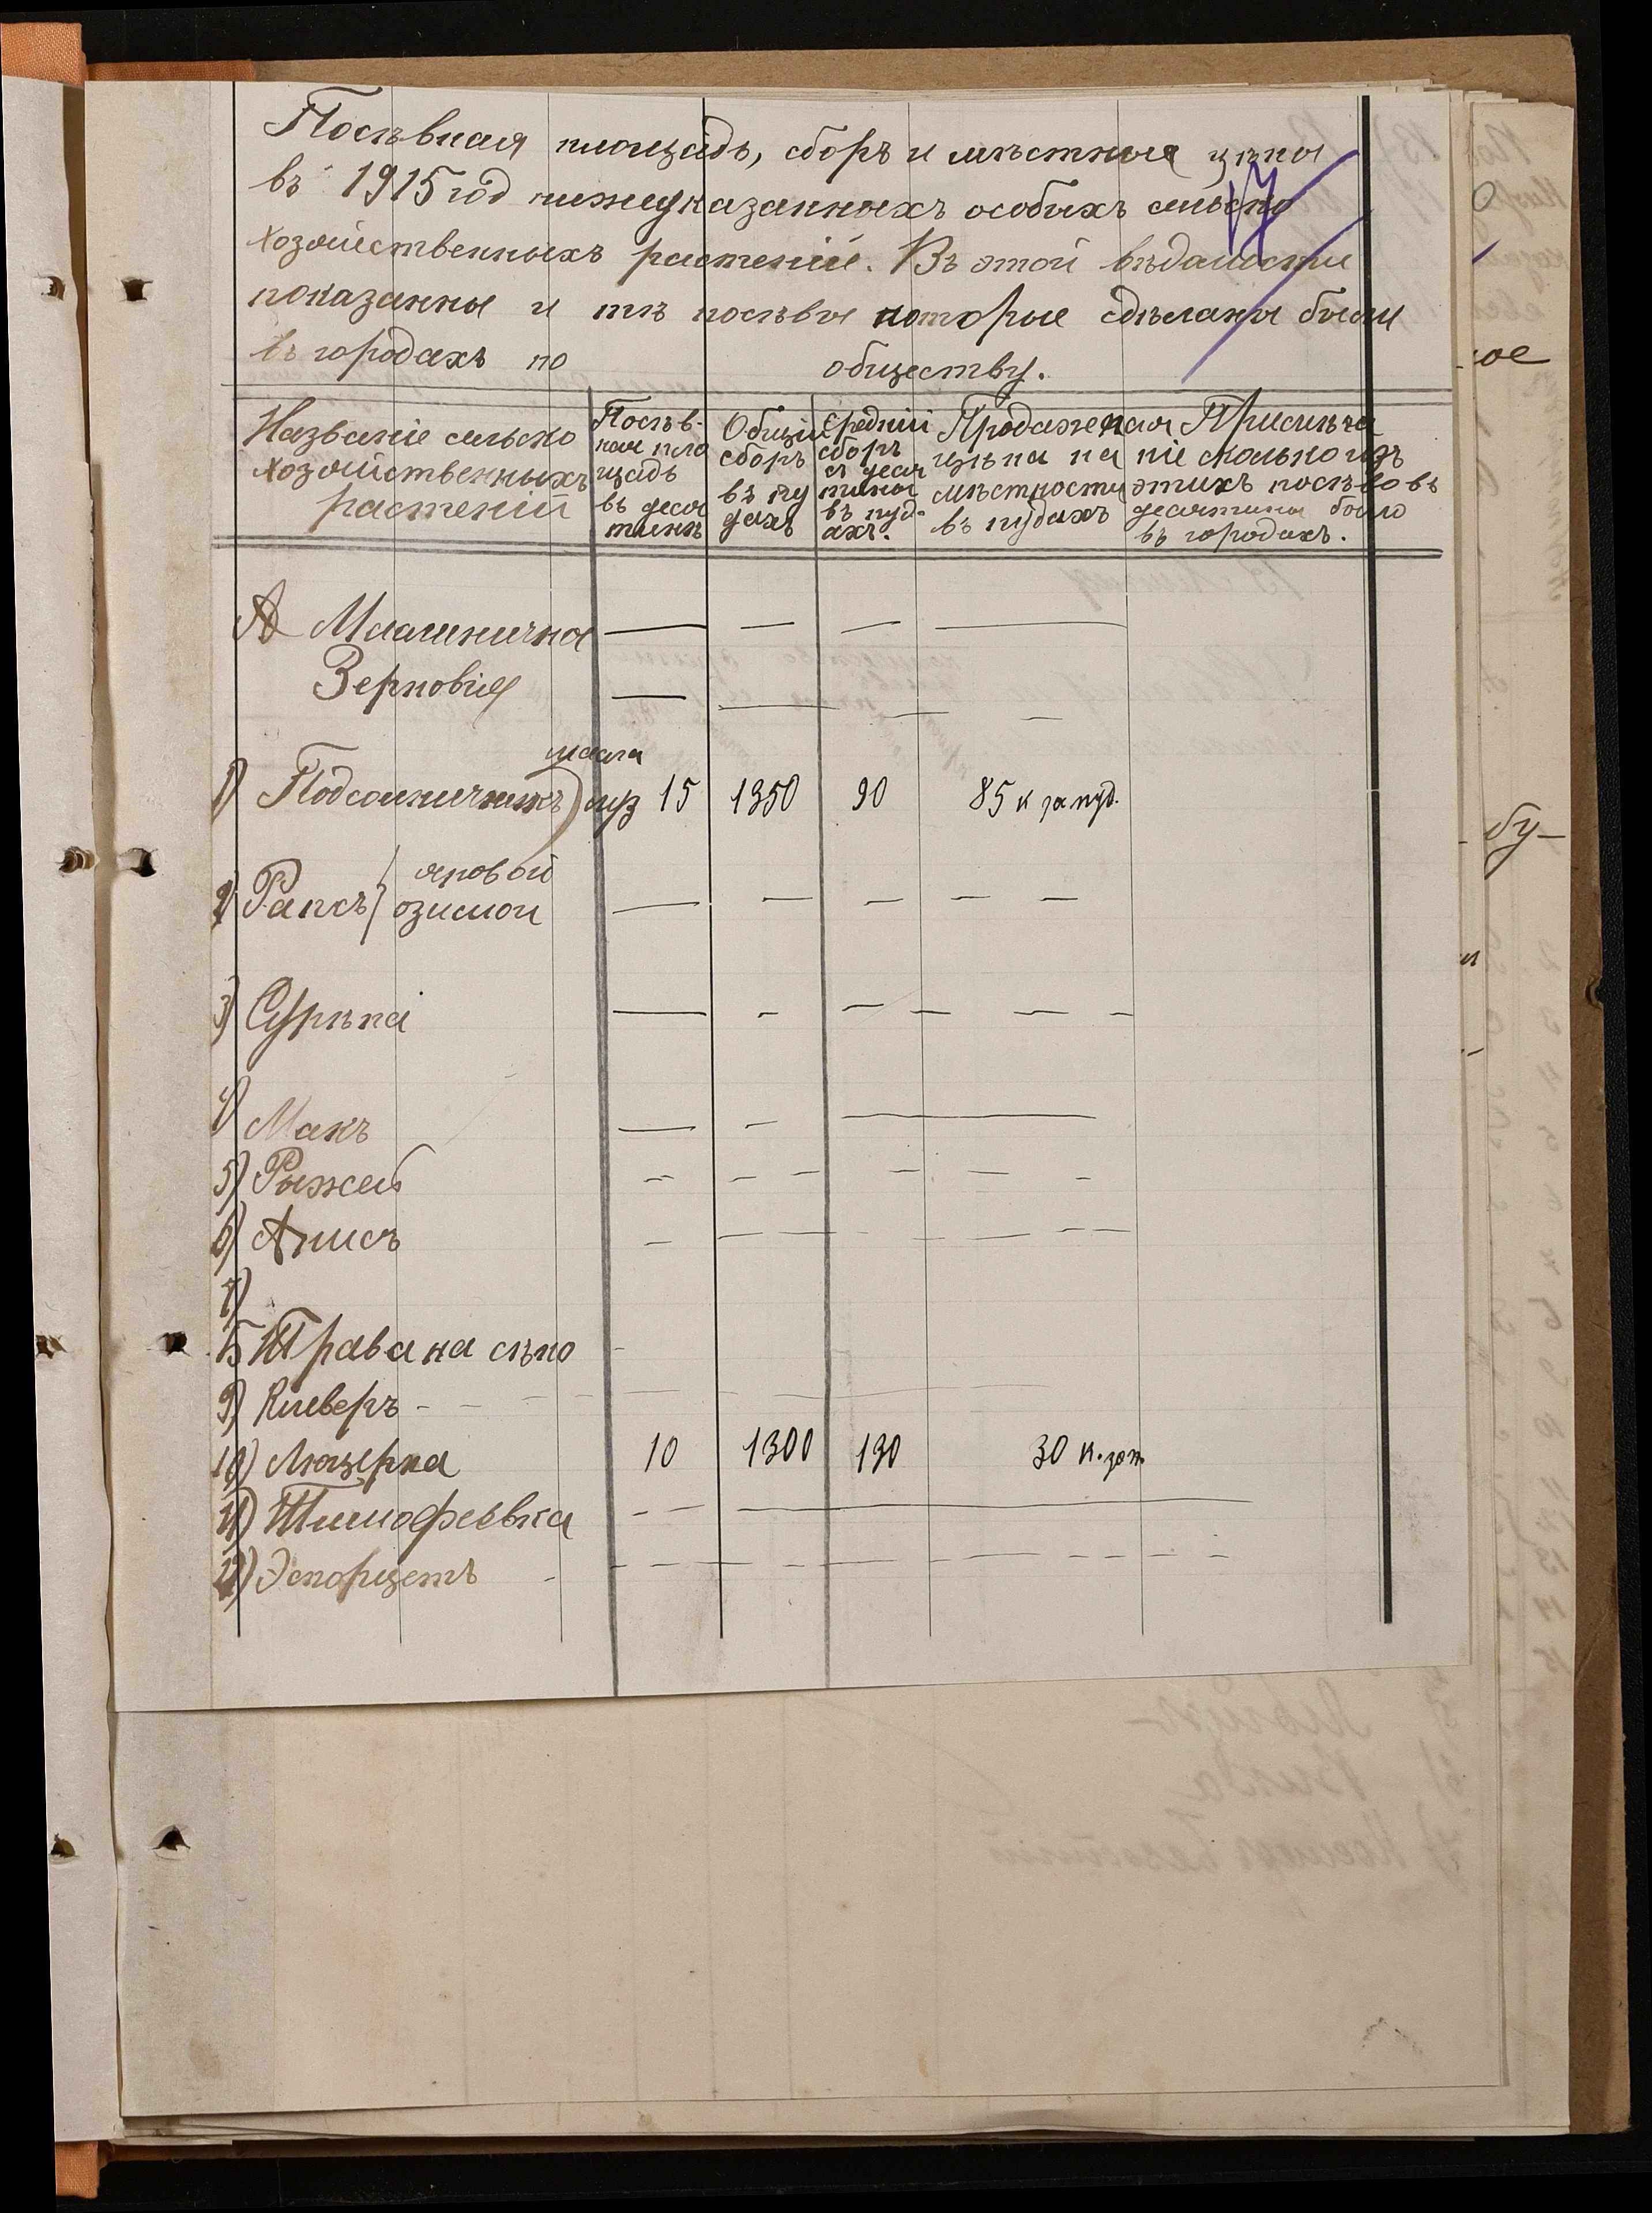 Посѣвная площадь, сборъ и мѣстныя цѣны
въ 1915 год нижеуказанныхъ особыхъ сельско
хозяйственныхъ растеній. Въ этой вѣдамости
показанны и тѣ посѣвы которые сдѣланы были
въ городахъ по обществу.
17
Названіе сельско хозяйственныхъ растеній
Посѣв-ная пло щадь въ деся тинѣ
Общій сборъ въ пу дахъ
Средній сборъ съ деся тины въ пуд-ахъ.
Продажная цѣна на мѣстности въ пудахъ
Присимѣча ніе сколько изъ этихъ посѣвовъ десятины было въ городахъ.
А Масличныя — — — —
Зерновія — — — —
1) Подсолничникъ) масла луз 15 1350 90 85 к за пуд.
2) Рапсъ} яровой озимой — — — — —
3) Сурѣпа — - — — — -
4) Макъ — — —
5) Рыжей - - - - — -
6) Анисъ - — — - - — —
7)
Б Трава на сѣно -
9) Клеверъ - -
10) Люцерна 10 1300 130 30 к.
11) Тимофеевка - — —
12) Эспорцетъ - - - — - - —
ое
бу-